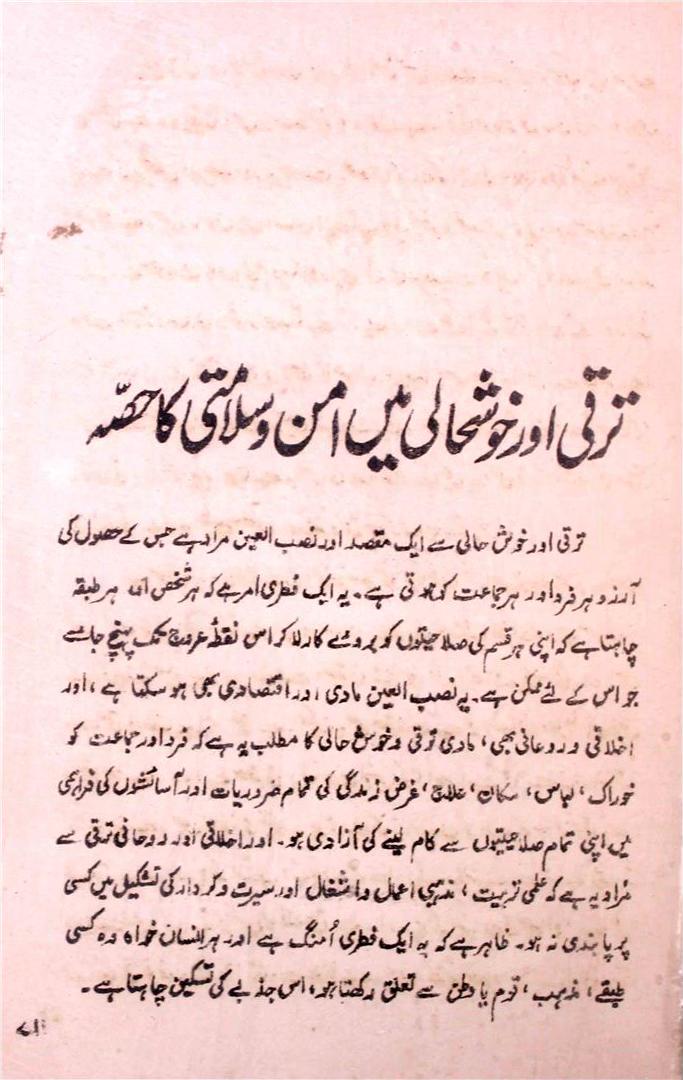 ترقی اور خوشحالی میں امن و سلامتی کا حصّہ
ترقی اور خوش حالی سے ایک مقصد اور نصب العین مراد ہے جس کے حصول کی
آرزو ہر فرد اور ہر جماعت کو ہوتی ہے۔ یہ ایک فطری امر ہے کہ ہر شخص اور ہر طبقہ
چاہتا ہے کہ اپنی ہر قسم کی صلاحیتوں کو بروئے کار لا کر اس نقطۂ عروج تک پہنچ جائے
جو اس کے لئے ممکن ہے۔ یہ نصب العین مادی اور اقتصادی بھی ہو سکتا ہے، اور
اخلاقی و روحانی بھی، مادی ترقی و خوش حالی کا مطلب یہ ہے کہ فرد اور جماعت کو
خوراک، لباس، مکان، علاج، غرض زندگی کی تمام ضروریات اور آسائشوں کی فراہمی
میں اپنی تمام صلاحیتوں سے کام لینے کی آزادی ہو۔ اور اخلاقی اور روحانی ترقی سے
مُراد یہ ہے کہ علمی تربیت، مذہبی اعمال و اشغال اور سیرت و کردار کی تشکیل میں کسی
پر پابندی نہ ہو۔ ظاہر ہے کہ یہ ایک فطری اُمنگ ہے اور ہر انسان خواہ وہ کسی
طبقے، مذہب، قوم یا وطن سے تعلق رکھتا ہو، اس جذبے کی تسکین چاہتا ہے۔